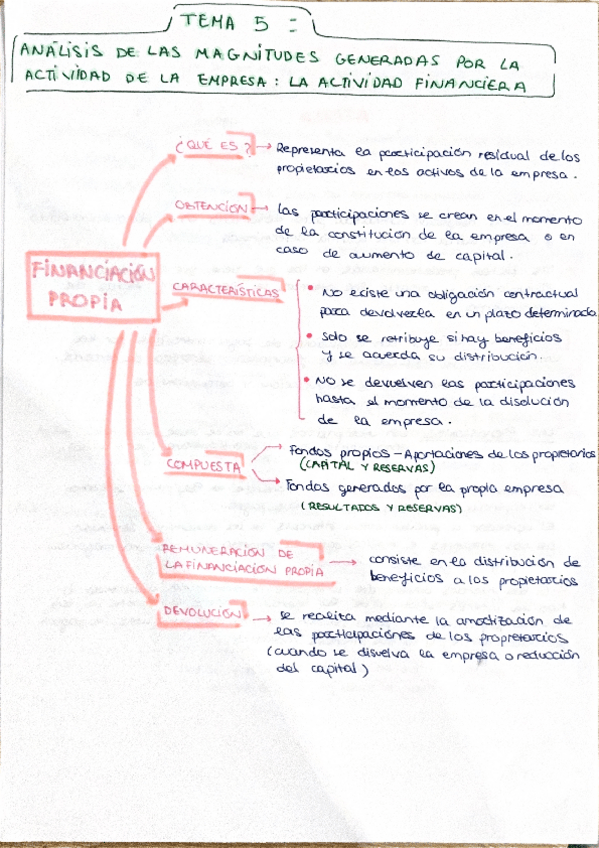 TEMA 5 :
ANÁLISIS DE LAS MAGNITUDES GENERADAS POR LA
ACTIVIDAD DE LA EMPRESA : LA ACTIVIDAD FINANCIERA
¿QUÉ ES?
Representa la participación residual de los
propietarios en los activos de la empresa.
OBTENCIÓN
Las participaciones se crean en el momento
de la constitución de la empresa o en
caso de aumento de capital.
FINANCIACIÓN
PROPIA
CARACTERÍSTICAS
• No existe una obligación contractual
para devolverla en un plazo determinada
• Solo se retribuye si hay beneficios
y se acuerda su distribución.
• NO se devuelven las participaciones
hasta el momento de la disolución
de la empresa.
COMPUESTA
Fondos propios - Aportaciones de los propietarios
(CAPITAL Y RESERVAS)
Fondos generados por la propia empresa
(RESULTADOS Y RESERVAS)
REMUNERACIÓN DE
LA FINANCIACIÓN PROPIA
consiste en la distribución de
beneficios a los propietarios
DEVOLUCIÓN
se realiza mediante la amortización de
las participaciones de los propietarios
(cuando se disuelva la empresa o reducción
del capital)